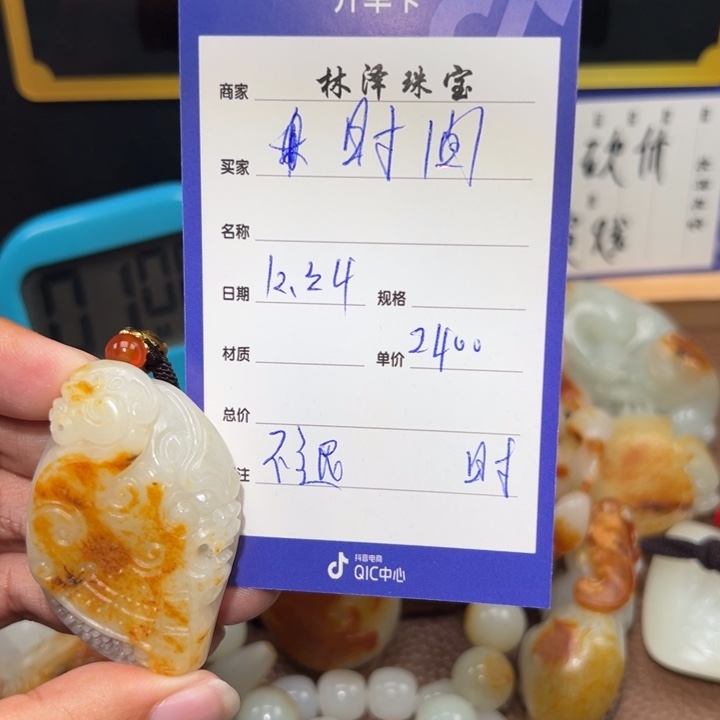 开单卡
商家 林泽珠宝
买家 财 间
名称
日期 12.24 规格
材质 单价 2400
总价
注 不退 财
抖音电商
QIC中心
砍价